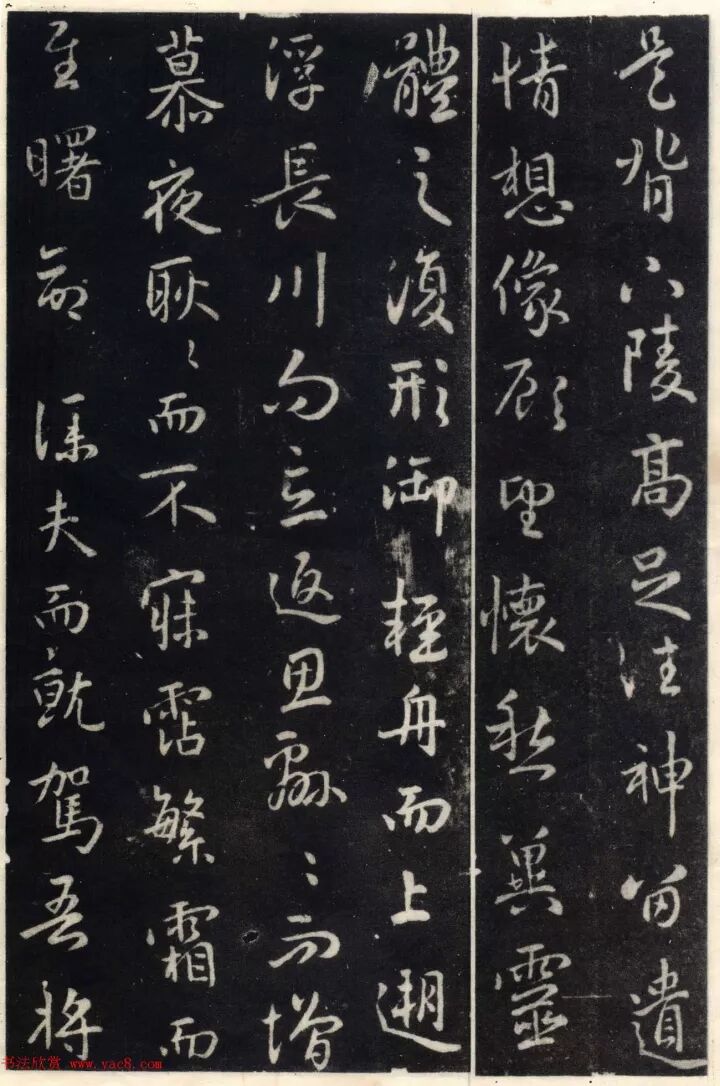 是背下陵高足往神留遺
情想像顧望懷愁冀靈
體之復形御輕舟而上遡
浮長川而忘返思緜〻而增
慕夜耿〻而不寐霑繁霜而
至曙命僕夫而就駕吾將
书法欣赏 www.yac8.com